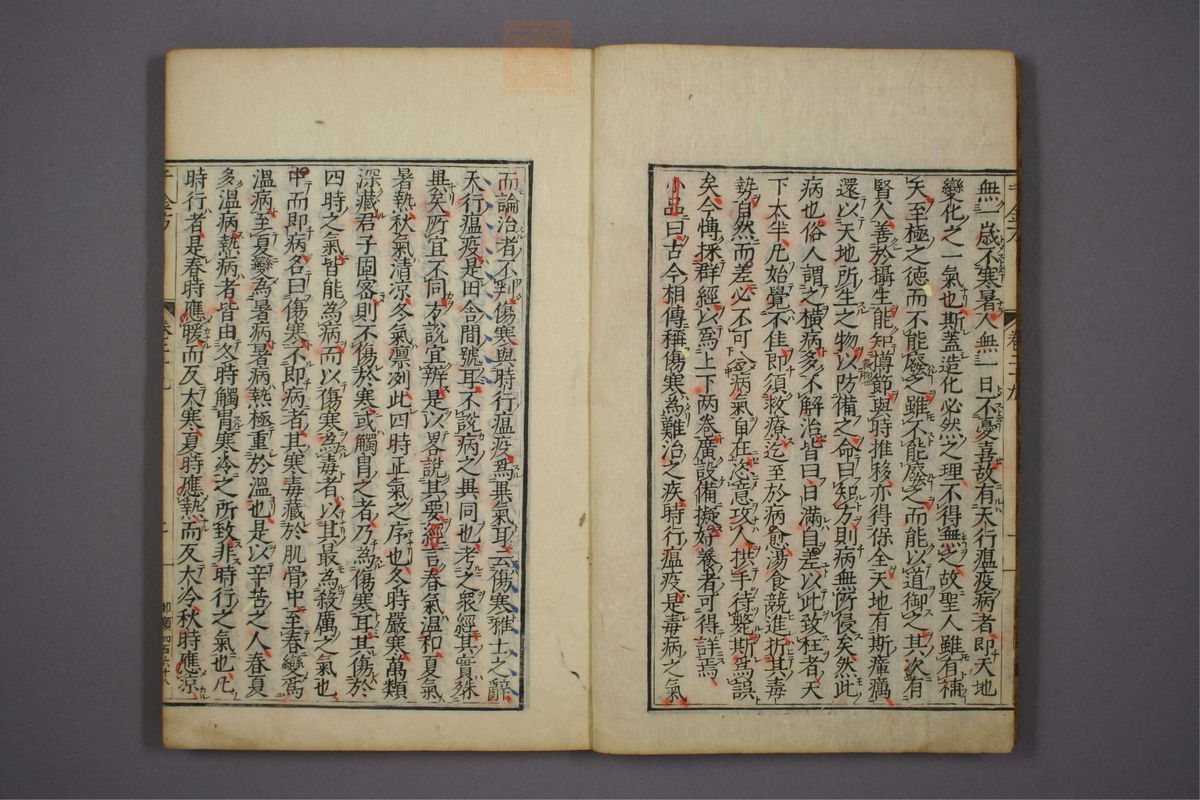 無一歳不寒暑人無一日不憂喜故有天行瘟疫病者即天地
變化之一氣也斯蓋造化必然之理不得無之故聖人雖有補
天至極之德而不能廢之雖不能廢之而能以道御之其次有
賢人善於攝生能知撙節與時推移亦得保全天地有斯瘴癘
還以天地所生之物以防備之命曰知方則病無所侵矣然此
病也俗人謂之橫病多不解治皆曰日滿自差以此致枉者天
下太半凢始覺不佳即須救療迄至於病愈湯食競進折其毒
勢自然而差必不可令病氣自在恣意攻人拱手待斃斯為誤
矣今博採群經以為上下两卷廣設備擬好養者可得詳焉
小品曰古今相傳稱傷寒為難治之疾時行瘟疫是毒病之氣
而論治者不判傷寒與時行瘟疫為異氣耳云傷寒雅士之辭
天行瘟疫是田舍間號耳不說病之異同也考之衆經其實殊
異矣所宜不同方說宜辨是以畧說其要經言春氣温和夏氣
暑熱秋氣清凉冬氣凛冽此四時正氣之序也冬時嚴寒萬類
深藏君子固密則不傷於寒或觸冒之者乃為傷寒耳其傷於
四時之氣皆能為病而以傷寒為毒者以其最為殺厲之氣也
中而即病名曰傷寒不即病者其寒毒藏於肌骨中至春變為
溫病至夏變為暑病暑病熱極重於溫也是以辛苦之人春夏
多溫病熱病者皆由冬時觸冒寒冷之所致非時行之氣也凢
時行者是春時應暖而反大寒夏時應熱而反大冷秋時應凉